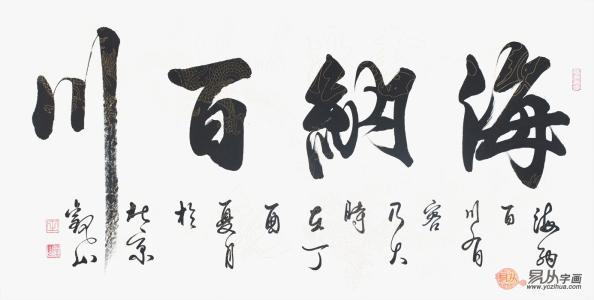 海納百川
海納
百
川有
容
乃大
時
在丁
酉
夏月
於
北京
觀山
易从字画
www.yczihua.com